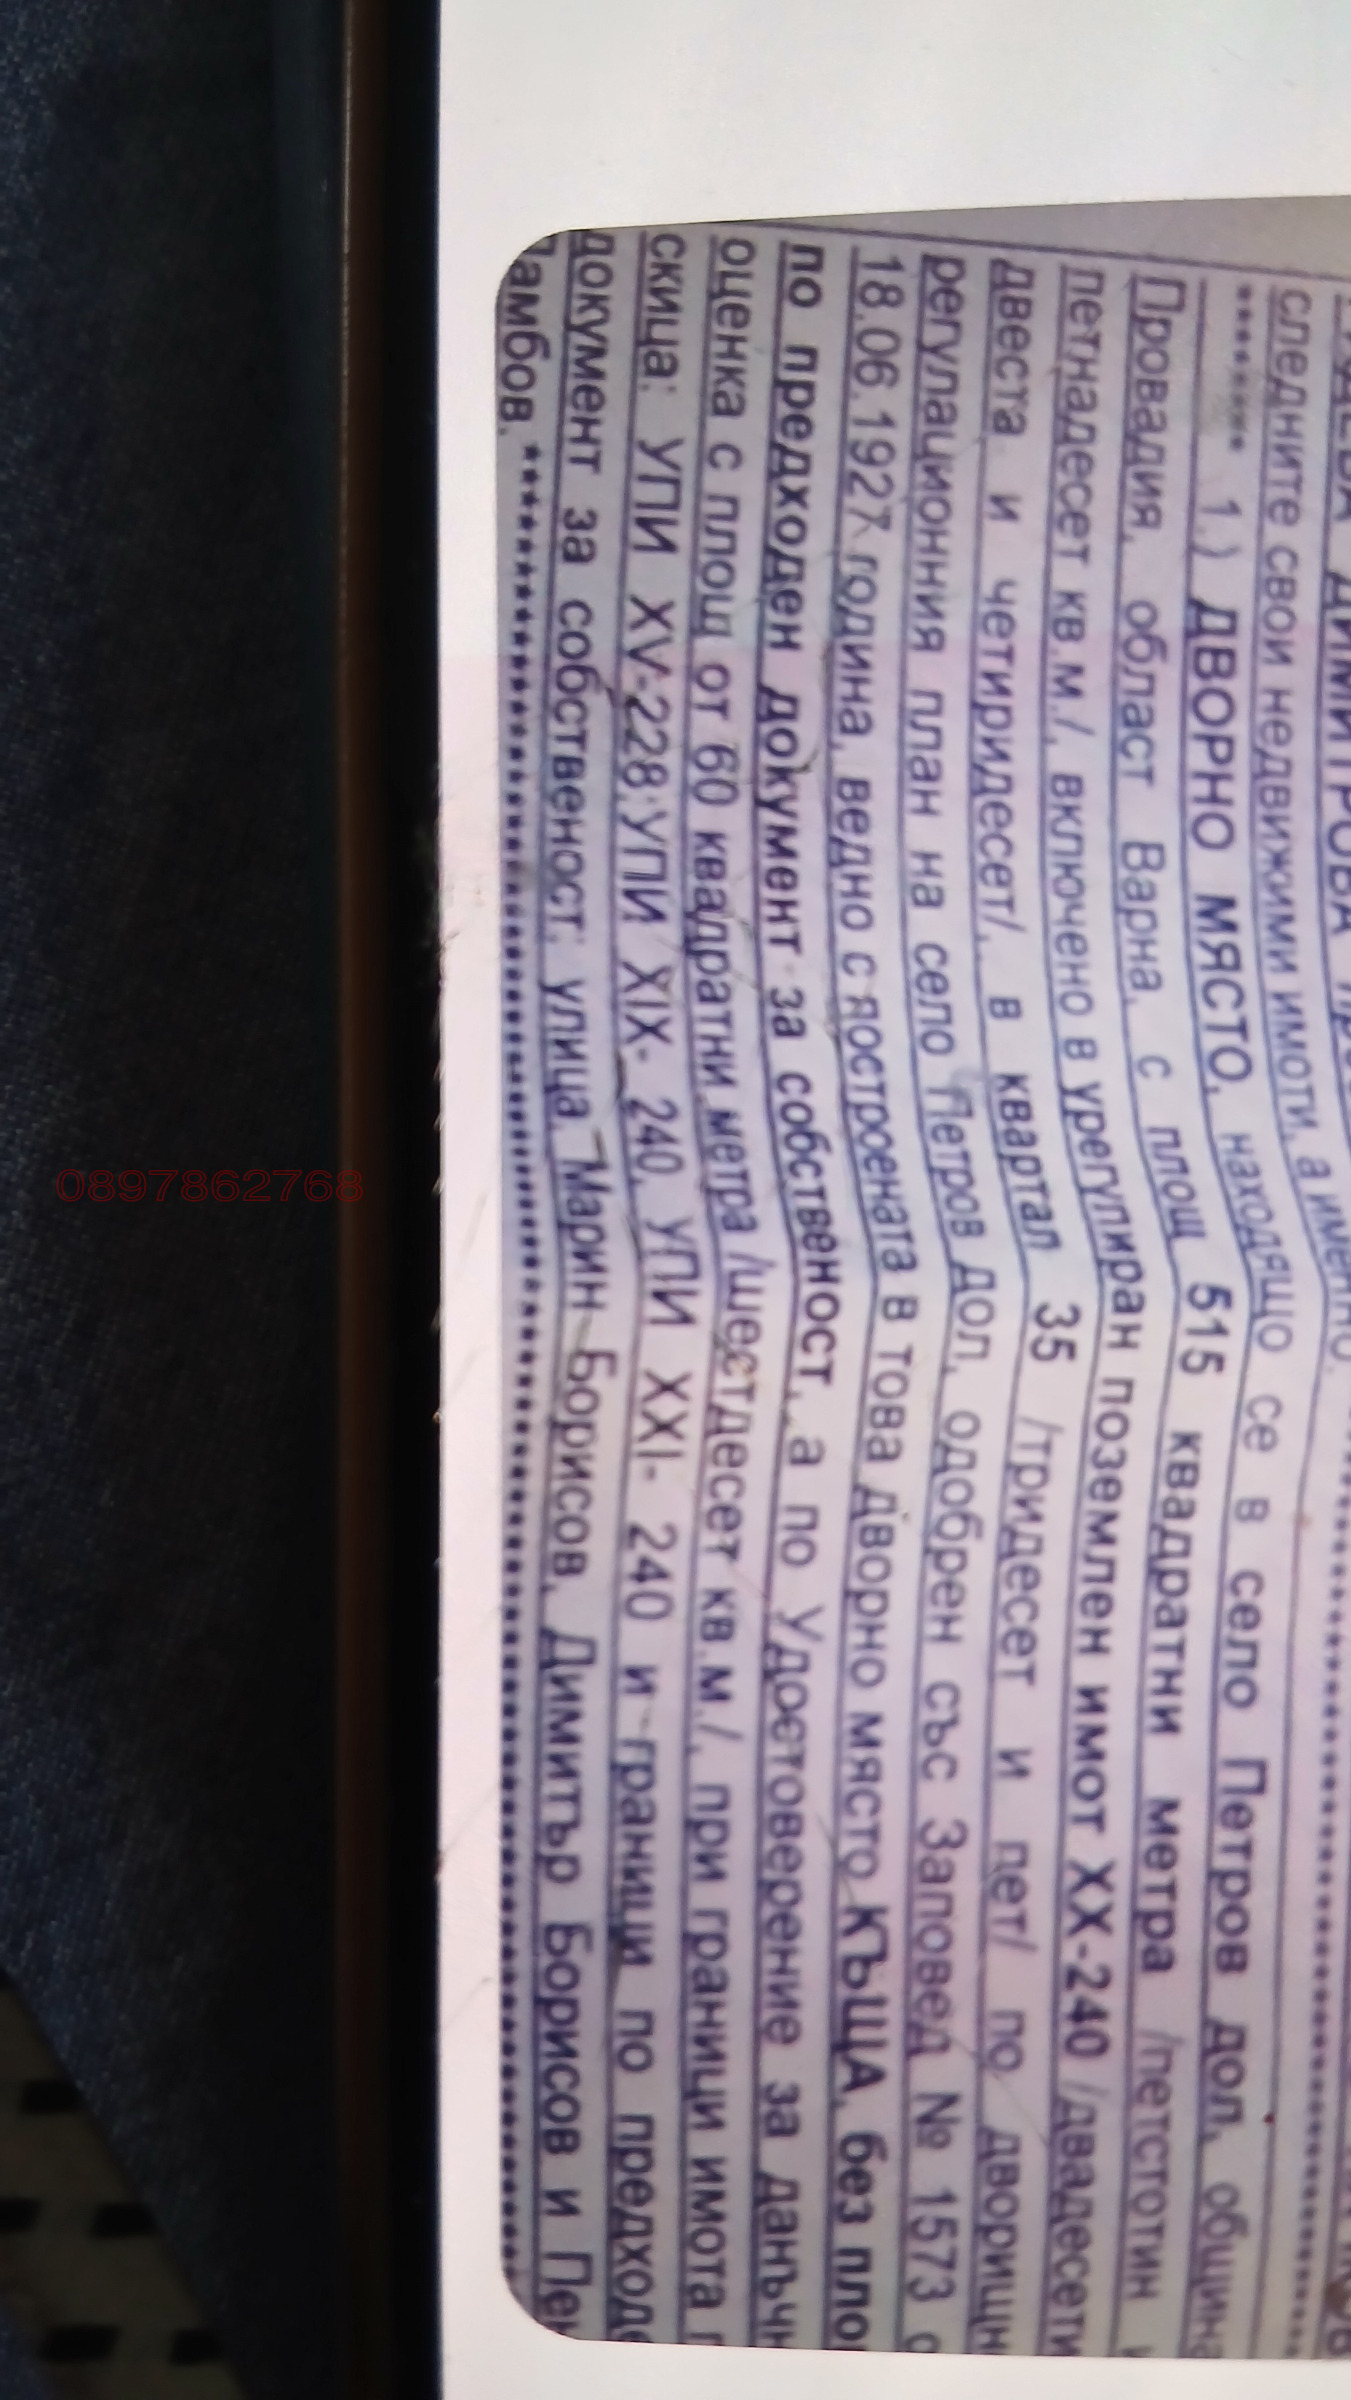 ДИМИТРОВА
следните свои недвижими имоти, а именно:
******** 1.) ДВОРНО МЯСТО, находящо се в село Петров дол, община
Провадия, област Варна, с площ 515 квадратни метра /петстотин
петнадесет кв.м./, включено в урегулиран поземлен имот XX-240 /двадесети
двеста и четиридесет/, в квартал 35 /тридесет и пет/ по дворищн
регулационния план на село Петров дол, одобрен със Заповед № 1573 о
18.06.1927 година, ведно с построената в това дворно място КЪЩА, без пло
по предходен документ за собственост, а по Удостоверение за данъчн
оценка с площ от 60 квадратни метра /шестдесет кв.м./, при граници имота п
скица: УПИ XV-228;УПИ XIX- 240, УПИ XXI- 240 и граници по предход
документ за собственост: улица, Марин Борисов, Димитър Борисов и Пен
Ламбов.
0897862768